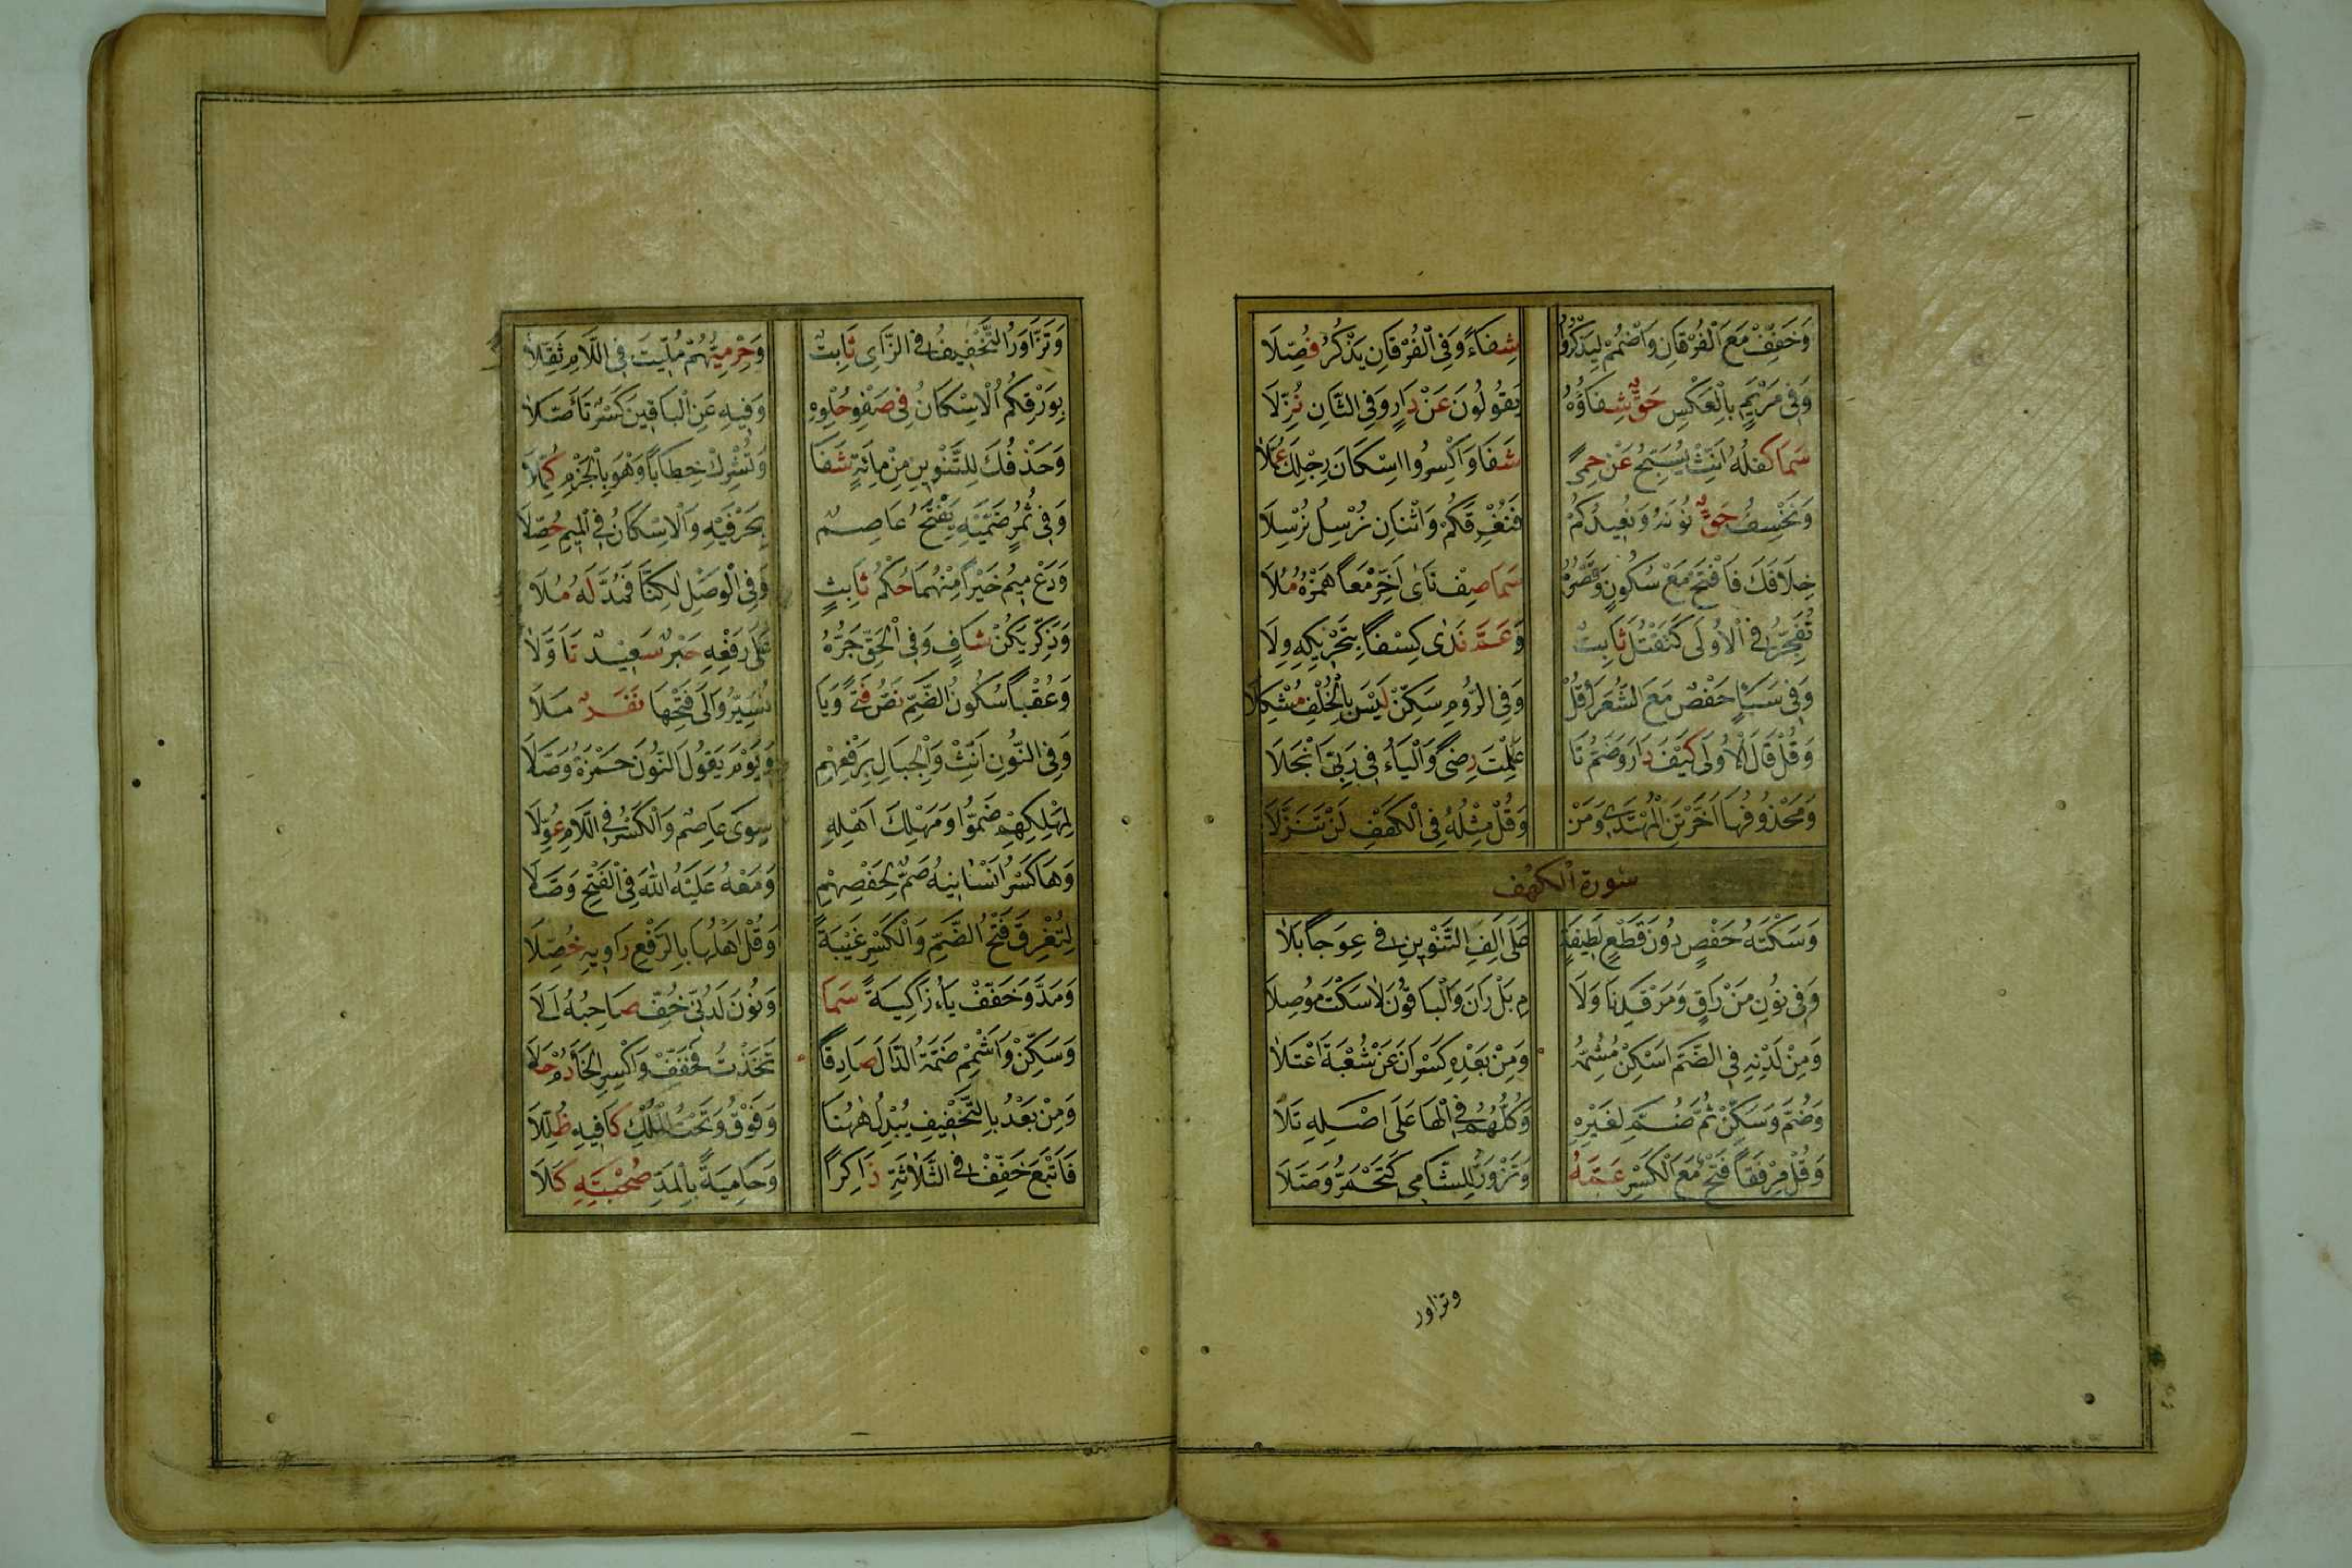 وَخَفِّفْ مَعَ الْفُرْقَانِ وَاضْمُمْ لِيَذْكُرُوا شِفَاءً وَفِي الْفُرْقَانِ يَذْكُرُ فُصِّلَا
وَفِي مَرْيَمٍ بِالْعَكْسِ حَقٌّ شِفَاؤُهُ يَقُولُونَ عَنْ دَارٍ وَفِي الثَّانِ نُزِّلَا
سَمَا كِفْلُهُ أَنِّثْ يُسَبِّحُ عَنْ حِمًى شَفَا وَاكْسِرُوا اسْكَانَ رِجْلِكَ عُمَّلَا
وَنَخْسِفُ حَقٌّ نُونُهُ وَنُعِيدَكُمْ فَنُغْرِقَكُمْ وَاثْنَانِ نُرْسِلَ نُرْسِلَا
خِلَافَكَ فَافْتَحْ مَعْ سُكُونٍ وَقَصْرُهُ سَمَا صِفْ نَاٰى اَخِّرْ مَعاً هَمْزُهُ مُلَا
تُفَجِّرَ فِي الْأُولَى كَتَقْتُلَ ثَابِتٌ وَعَمَّ نَدَى كِسْفاً بِتَحْرِيكِهِ وِلَا
وَفِي سَبَاٍ حَفْصٌ مَعَ الشُّعَرَا وَقُلْ وَفِي الرُّومِ سَكِّنْ لَيْسَ بِالْخُلْفِ مُشْكِلَا
وَقُلْ قَالَ الْأُولَى كَيْفَ دَارَ وَضَمُّ تَا عَلِمْتَ رِضًى وَالْيَاءُ فِي رَبِّيَ انْجَلَا
وَمَحْذُوفُهَا أَخَّرْتَنِ الْمُهْتَدِي وَمَنْ وَقُلْ مِثْلُهُ فِي الْكَهْفِ لَنْ تَتَنَزَّلَا
سورة الكهف
وَسَكْتَةُ حَفْصٍ دُونَ قَطْعٍ لَطِيفَةٍ عَلَى أَلِفِ التَّنْوِينِ فِي عِوَجاً بَلَا
وَفِي نُونِ مَنْ رَاقٍ وَمَرْقَدِنَا وَلَا مِ بَلْ رَانَ وَالْبَاقُونَ لَا سَكْتَ مُوصِلَا
وَمِنْ لَدْنِهِ فِي الضَّمِّ اَسْكِنْ مُشِمَّهُ وَمِنْ بَعْدِهِ كَسْرَانِ عَنْ شُعْبَةَ اعْتَلَا
وَضُمَّ وَسَكِّنْ ثُمَّ ضُمَّ لِغَيْرِهِ وَكُلُّهُمُ فِي الْهَا عَلَى اَصْلِهِ تَلَا
وَقُلْ مِرْفَقاً فَتْحٌ مَعَ الْكَسْرِ عَمَّهُ وَتَزْوَرُّ لِلشَّامِي كَتَحْمَرُّ وُصِّلَا
وتزاور
وَتَزَّاوَرُ التَّخْفِيفُ فِي الزَّايِ ثَابِتٌ وَحِرْمِيُّهُمْ مُلِّيتَ فِي اللَّامِ ثَقَّلَا
بِوَرْقِكُمُ الْاِسْكَانُ فِي صَفْوِ حُلْوِهِ وَفِيهِ عَنِ الْبَاقِينَ كَسْرٌ تَأَصَّلَا
وَحَذْفُكَ لِلتَّنْوِينِ مِنْ مِائَةٍ شَفَا وَتُشْرِكْ خِطَاباً وَهْوَ بِالْجَزْمِ كُمِّلَا
وَفِي ثُمُرٍ ضَمَّيْهِ يَفْتَحُ عَاصِمٌ بِحَرْفَيْهِ وَالْاِسْكَانُ فِي الْمِيمِ حُصِّلَا
وَدَعْ مِيمَ خَيْراً مِنْهُمَا حُكْمُ ثَابِتٍ وَفِي الْوَصْلِ لٰكِنَّا فَمُدَّ لَهُ مُلَا
وَذَكِّرْ يَكُنْ شَافٍ وَفِي الْحَقِّ جَرُّهُ عَلَى رَفْعِهِ حَبْرٌ سَعِيدٌ تَاَوَّلَا
وَعُقْباً سُكُونُ الضَّمِّ نَصُّ فَتًى وَيَا نُسَيِّرُ وَالَى فَتْحَهَا نَفَرٌ مَلَا
وَفِي النُّونِ اَنِّثْ وَالْجِبَالِ بِرَفْعِهِمْ وَيَوْمَ يَقُولُ النُّونُ حَمْزَةُ وَصَّلَا
لِمَهْلِكِهِمْ ضَمُّوا وَمَهْلِكَ اَهْلِهِ سِوَى عَاصِمٍ وَالْكَسْرُ فِي اللَّامِ عُوِّلَا
وَهَا كَسْرُ اَنْسَانِيهِ ضُمَّ لِحَفْصِهِمْ وَمَعْهُ عَلَيْهِ اللهَ فِي الْفَتْحِ وَصَّلَا
لِتُغْرِقَ فَتْحُ الضَّمِّ وَالْكَسْرِ غَيْبَةً وَقُلْ اَهْلُهَا بِالرَّفْعِ رَاوِيهِ فُصِّلَا
وَمُدَّ وَخَفِّفْ يَاءَ زَاكِيَةً سَمَا وَنُونَ لَدُنِّي خُفَّ صَاحِبُهُ اِلَى
وَسَكِّنْ وَاَشْمِمْ ضَمَّةَ الدَّالِ صَادِقاً تَخَذْتَ فَخَفِّفْ وَاكْسِرِ الْخَاءَ دُمْ حُلَا
وَمِنْ بَعْدُ بِالتَّخْفِيفِ يُبْدِلَ هٰهُنَا وَفَوْقَ وَتَحْتَ الْمُلْكِ كَافِيهِ ظُلِّلَا
فَاَتْبَعَ خَفِّفْ فِي الثَّلَاثَةِ ذَاكِراً وَحَامِيَةً بِالْمَدِّ صُحْبَتُهِ كَلَا